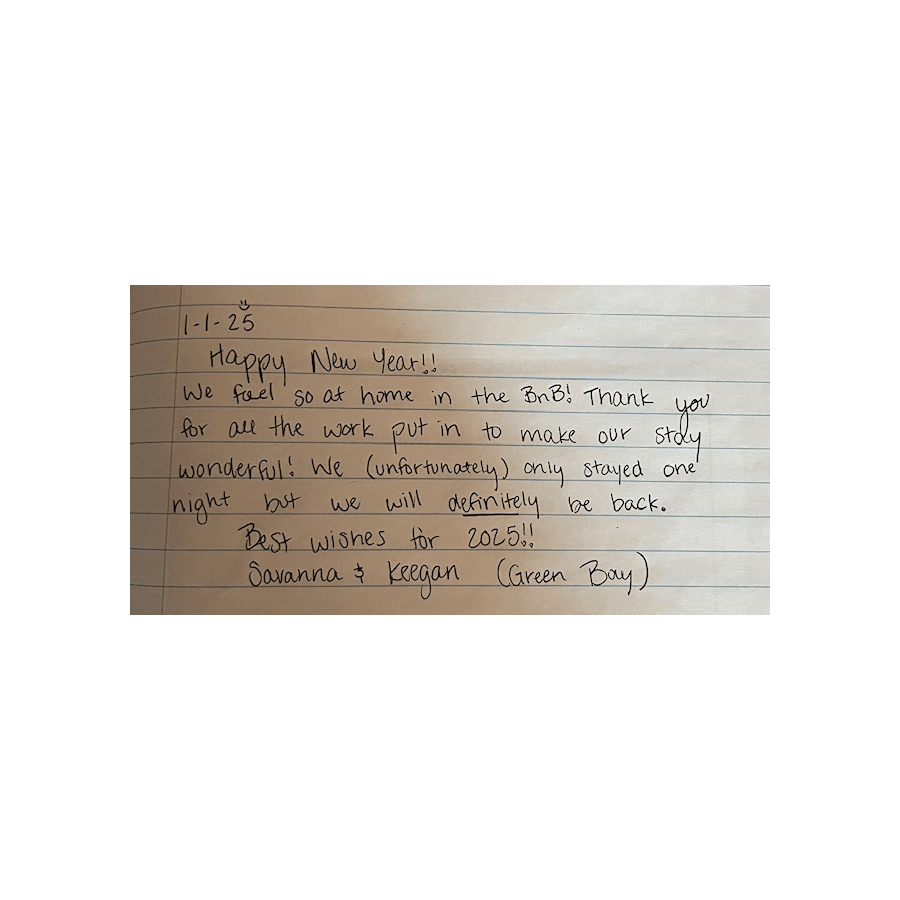 1-1-25
Happy New Year!!
We feel so at home in the BnB! Thank you
for all the work put in to make our stay
wonderful! We (unfortunately) only stayed one
night but we will definitely be back.
Best wishes for 2025!!
Savanna & Keegan (Green Bay)